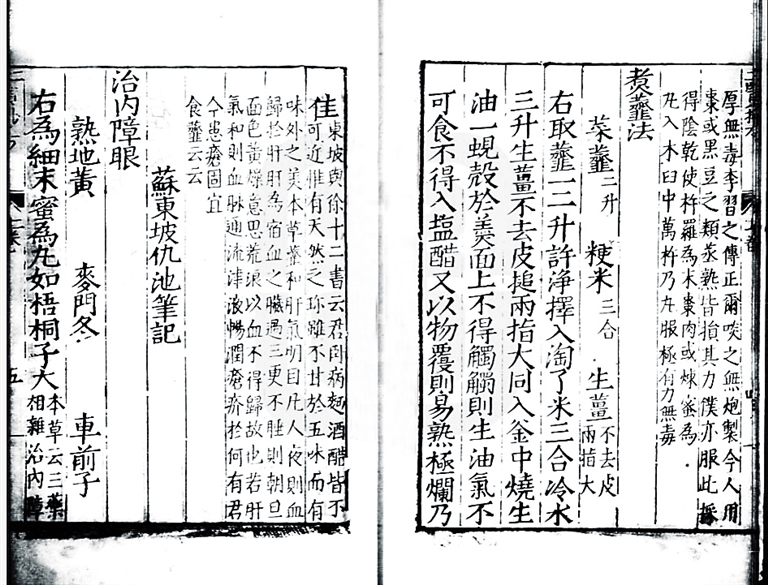 厚無毒李習之傳正爾啖之無炮製今人用
棗或黑豆之類蒸熟皆損其力僕亦服此採
得陰乾使杵羅為末棗肉或煉蜜為
丸入木臼中萬杵乃丸服極有力無毒
煑虀法
菜虀二升 粳米三合 生薑不去皮兩指大
右取虀一二升許淨擇入淘了米三合冷水
三升生薑不去皮搥兩指大同入釜中燒生
油一蜆殼於羙面上不得觸觸則生油氣不
可食不得入塩醋又以物覆則易熟極爛乃
佳東坡與徐十二書云君卧病麵酒醋皆不
可近惟有天然之珎雖不甘於五味而有
味外之美本草虀和肝氣明目凡人夜則血
歸於肝肝為宿血之臟過三更不睡則朝旦
面色黃燥意思荒浪以血不得歸故也若肝
氣和則血脉通流津液暢潤瘡疥於何有君
今患瘡固宜
食虀云云
蘇東坡仇池筆記
治內障眼
熟地黃 麥門冬 車前子
右為細末蜜為丸如梧桐子大本草云三藥
相雜治內障
五